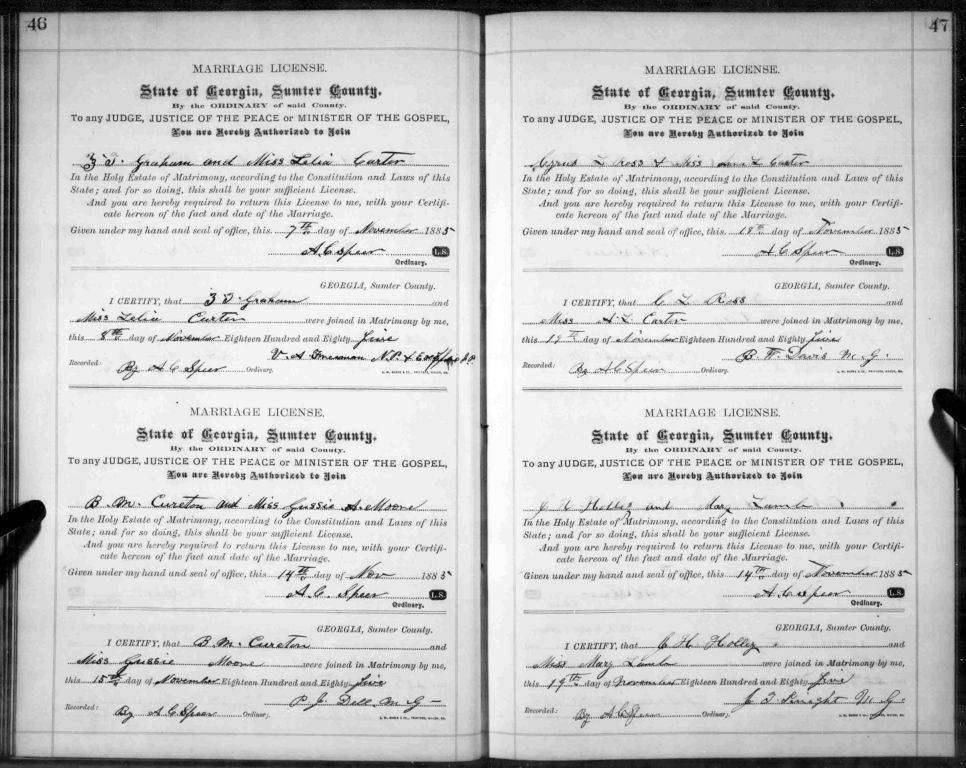 46
MARRIAGE LICENSE.
State of Georgia, Sumter County.
By the ORDINARY of said County.
To any JUDGE, JUSTICE OF THE PEACE or MINISTER OF THE GOSPEL,
You are Hereby Authorized to Join
Graham and Miss Lelia Carter
In the Holy Estate of Matrimony, according to the Constitution and Laws of this
State; and for so doing, this shall be your sufficient License.
And you are hereby required to return this License to me, with your Certifi-
cate hereon of the fact and date of the Marriage.
Given under my hand and seal of office, this 7th day of November 1885
A. C. Speer L.S.
Ordinary.
GEORGIA, Sumter County.
I CERTIFY, that Graham and
Miss Lelia Carter were joined in Matrimony by me,
this 8th day of November Eighteen Hundred and Eighty five
N.P. &
Recorded: By A C Speer Ordinary.
MARRIAGE LICENSE.
State of Georgia, Sumter County.
By the ORDINARY of said County.
To any JUDGE, JUSTICE OF THE PEACE or MINISTER OF THE GOSPEL,
You are Hereby Authorized to Join
B. M. Cureton and Miss Gussie A. Moone
In the Holy Estate of Matrimony, according to the Constitution and Laws of this
State; and for so doing, this shall be your sufficient License.
And you are hereby required to return this License to me, with your Certifi-
cate hereon of the fact and date of the Marriage.
Given under my hand and seal of office, this 14th day of Nov 1885
A. C. Speer L.S.
Ordinary.
GEORGIA, Sumter County.
I CERTIFY, that B. M. Cureton and
Miss Gussie Moone were joined in Matrimony by me,
this 15th day of November Eighteen Hundred and Eighty five
P. J. Dell M G
Recorded: By A C Speer Ordinary.
47
MARRIAGE LICENSE.
State of Georgia, Sumter County.
By the ORDINARY of said County.
To any JUDGE, JUSTICE OF THE PEACE or MINISTER OF THE GOSPEL,
You are Hereby Authorized to Join
Cyrus L Ross & Miss L Carter
In the Holy Estate of Matrimony, according to the Constitution and Laws of this
State; and for so doing, this shall be your sufficient License.
And you are hereby required to return this License to me, with your Certifi-
cate hereon of the fact and date of the Marriage.
Given under my hand and seal of office, this 18th day of November 1885
A C Speer L.S.
Ordinary.
GEORGIA, Sumter County.
I CERTIFY, that C L Ross and
Miss A. L. Carter were joined in Matrimony by me,
this day of November Eighteen Hundred and Eighty five
B. W. Davis M G.
Recorded: By A C Speer Ordinary.
MARRIAGE LICENSE.
State of Georgia, Sumter County.
By the ORDINARY of said County.
To any JUDGE, JUSTICE OF THE PEACE or MINISTER OF THE GOSPEL,
You are Hereby Authorized to Join
H Holley and Mary Lamb
In the Holy Estate of Matrimony, according to the Constitution and Laws of this
State; and for so doing, this shall be your sufficient License.
And you are hereby required to return this License to me, with your Certifi-
cate hereon of the fact and date of the Marriage.
Given under my hand and seal of office, this day of November 1885
A. C. Speer L.S.
Ordinary.
GEORGIA, Sumter County.
I CERTIFY, that H Holley and
Miss Mary Lamb were joined in Matrimony by me,
this 19th day of November Eighteen Hundred and Eighty five
Knight M G.
Recorded: By A C Speer Ordinary.